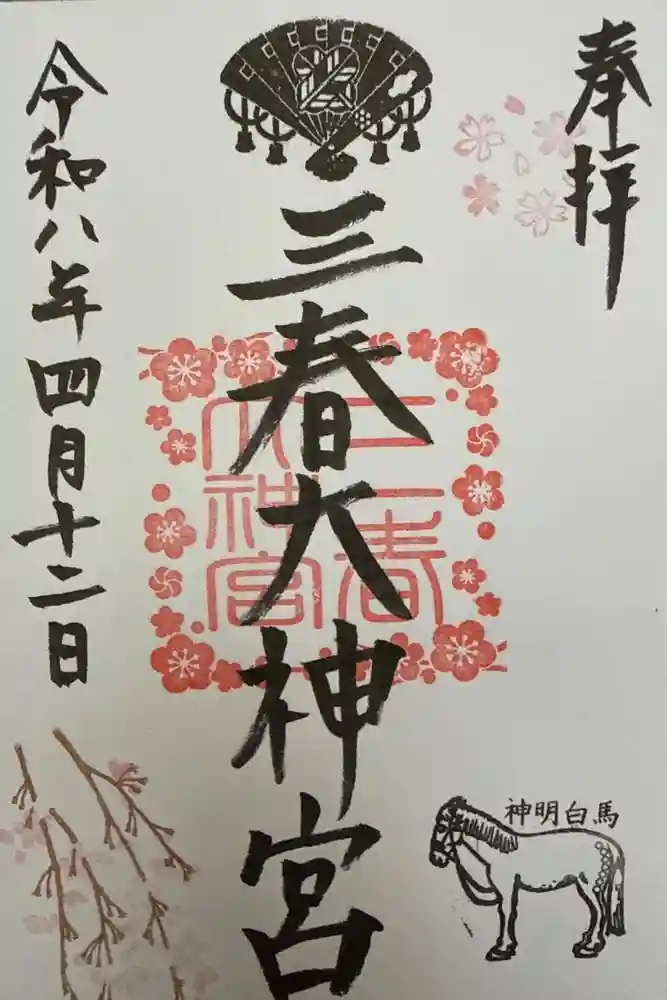 奉拝
三春大神宮
三春大神宮
令和八年四月十二日
神明白馬